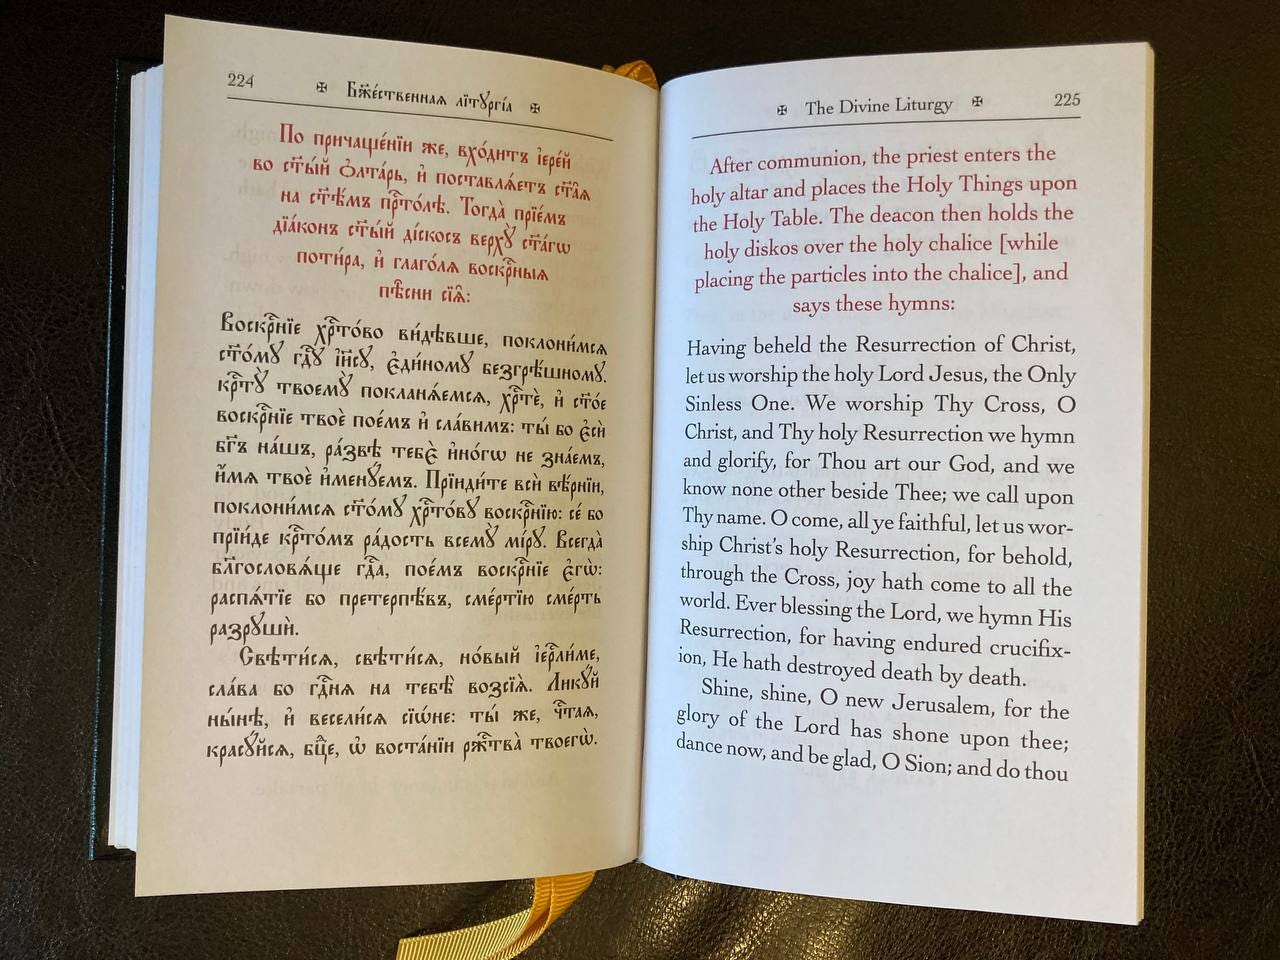 224 ✠ Бж҃е́ственнаѧ лїтꙋргі́а ✠
По причаще́нїи же, вхо́дитъ їере́й
во ст҃ы́й ѻ҆лта́рь, и҆ поставлѧ́етъ ст҃а̑ѧ
на ст҃ѣ́мъ прⷭ҇то́лѣ. Тогда̀ прїе́мъ
дїа́конъ ст҃ы́й ді́скосъ верхꙋ̀ ст҃а́гѡ
поти́ра, и҆ глаго́лѧ воскрⷭ҇ныѧ
пѣ̑сни сїѧ̑:
Воскрⷭ҇нїе хрⷭ҇то́во ви́дѣвше, поклони́мсѧ
ст҃о́мꙋ гдⷭ҇ꙋ і҆и҃сꙋ, є҆ди́номꙋ безгрѣ́шномꙋ.
крⷭ҇тꙋ̀ твоемꙋ̀ покланѧ́емсѧ, хрⷭ҇тѐ, и҆ ст҃о́е
воскрⷭ҇нїе твоѐ пое́мъ и҆ сла́вимъ: ты́ бо є҆сѝ
бг҃ъ на́шъ, ра́звѣ тебє̀ и҆но́гѡ не зна́емъ,
и҆́мѧ твоѐ и҆менꙋ́емъ. Прїиди́те всѝ вѣ́рнїи,
поклони́мсѧ ст҃о́мꙋ хрⷭ҇то́вꙋ воскрⷭ҇нїю: се́ бо
прїи́де крⷭ҇то́мъ ра́дость всемꙋ̀ мі́рꙋ. Всегда̀
блг҃ословѧ́ще гдⷭ҇а, пое́мъ воскрⷭ҇нїе є҆гѡ̀:
распѧ́тїе бо претерпѣ́въ, сме́ртїю сме́рть
разрꙋшѝ.
Свѣти́сѧ, свѣти́сѧ, но́вый їерⷭ҇ли́ме,
сла́ва бо гдⷭ҇нѧ на тебѣ̀ возсїѧ̀. Ликꙋ́й
ны́нѣ, и҆ весели́сѧ сїѡ́не: ты́ же, чⷭ҇таѧ,
красꙋ́йсѧ, бцⷣе, ѡ҆ воста́нїи ржⷭ҇тва̀ твоегѡ̀.
✠ The Divine Liturgy ✠ 225
After communion, the priest enters the
holy altar and places the Holy Things upon
the Holy Table. The deacon then holds the
holy diskos over the holy chalice [while
placing the particles into the chalice], and
says these hymns:
Having beheld the Resurrection of Christ,
let us worship the holy Lord Jesus, the Only
Sinless One. We worship Thy Cross, O
Christ, and Thy holy Resurrection we hymn
and glorify, for Thou art our God, and we
know none other beside Thee; we call upon
Thy name. O come, all ye faithful, let us wor-
ship Christ's holy Resurrection, for behold,
through the Cross, joy hath come to all the
world. Ever blessing the Lord, we hymn His
Resurrection, for having endured crucifix-
ion, He hath destroyed death by death.
Shine, shine, O new Jerusalem, for the
glory of the Lord has shone upon thee;
dance now, and be glad, O Sion; and do thou